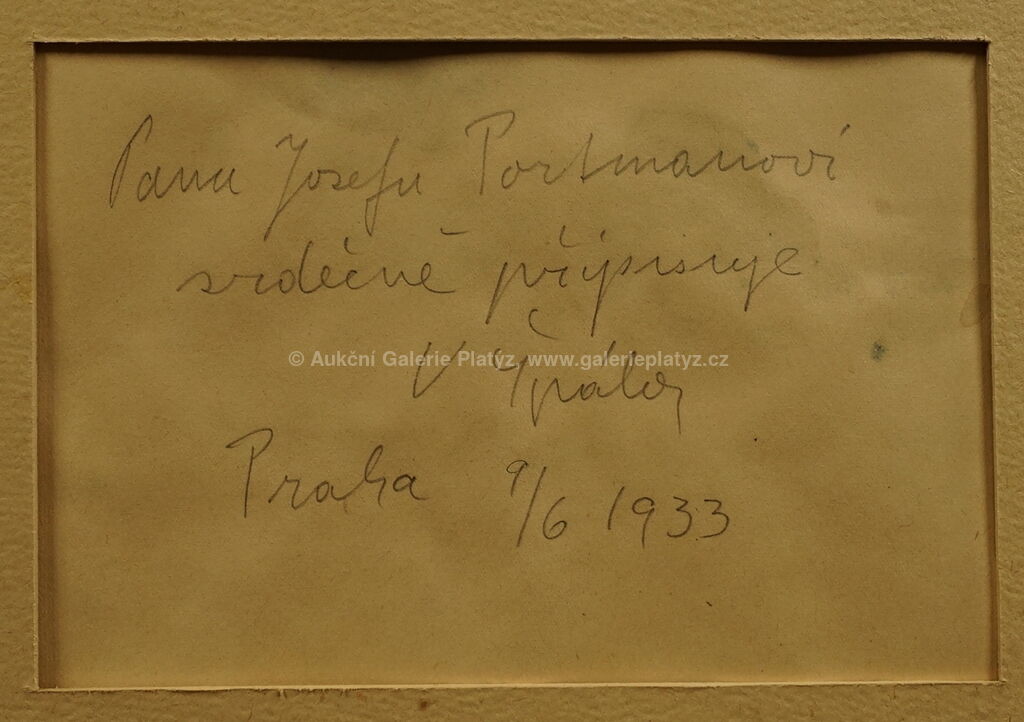 Panu Josefu Portmanovi
srdečně připisuje
© Aukční Galerie Platýz, www.galerieplatyz.cz
V Špála
Praha 9/6 1933